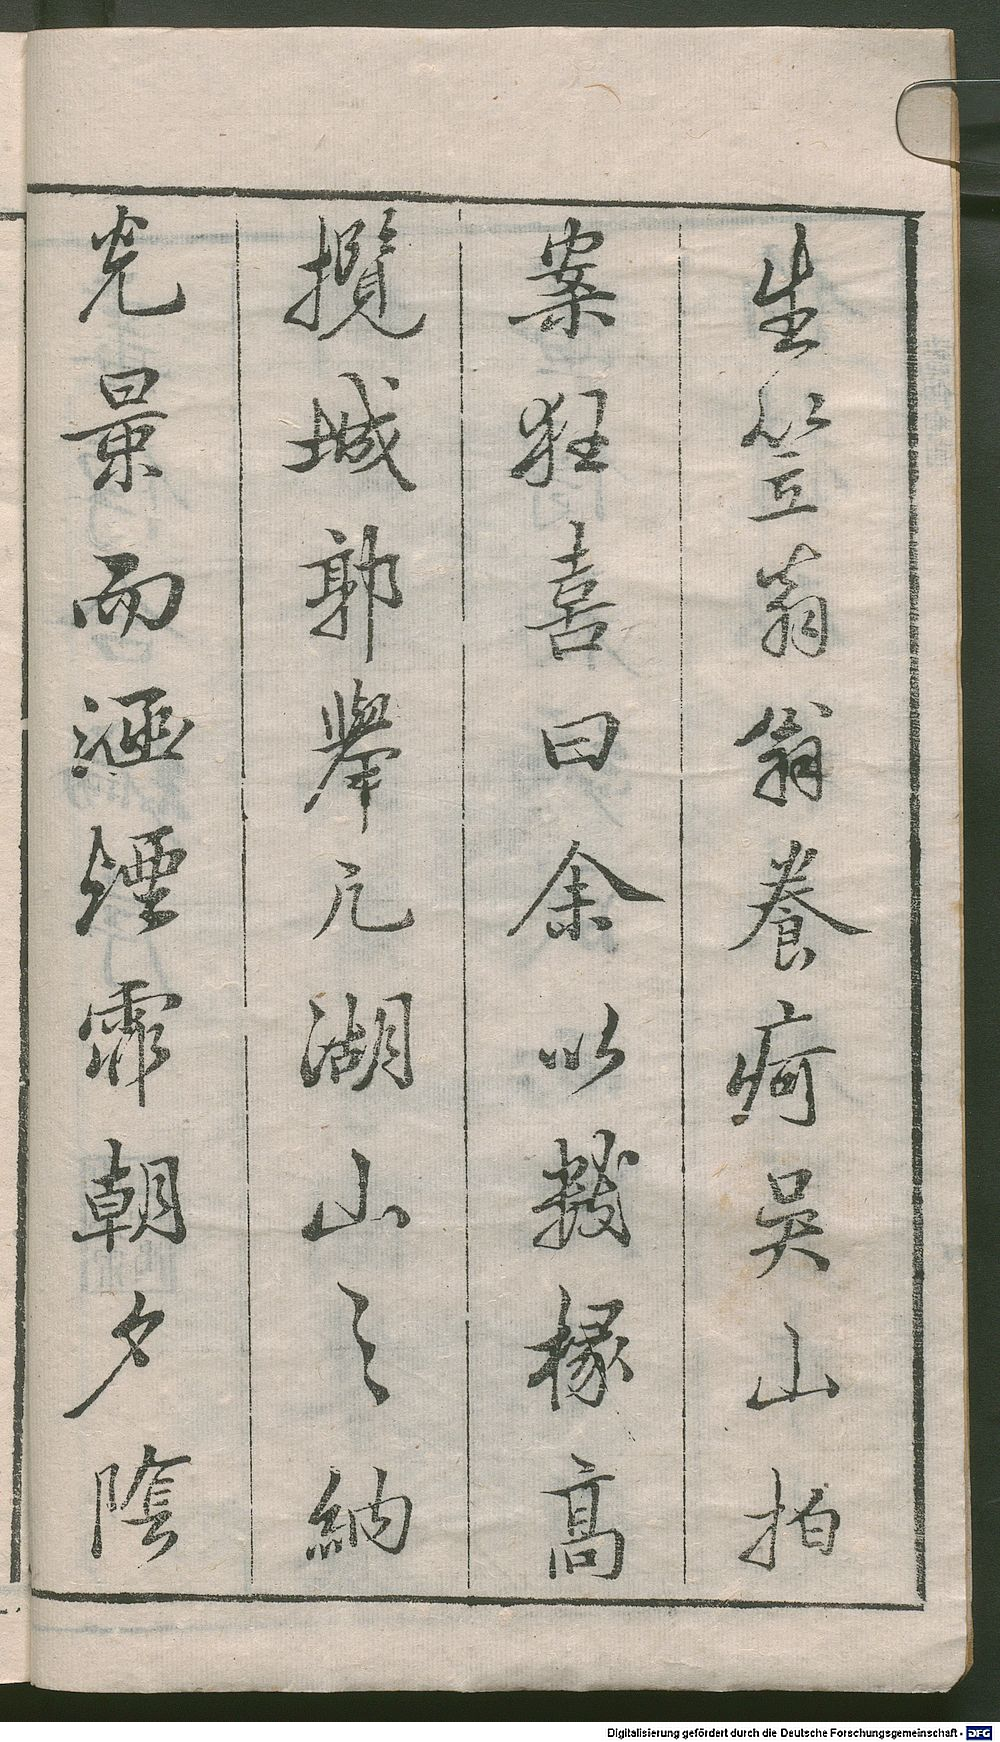 生笠翁翁養疴吳山拍
案狂喜曰余以數椽高
攬城郭舉凡湖山之納
光景而涵煙霏朝夕陰
Digitalisierung gefördert durch die Deutsche Forschungsgemeinschaft - DFG